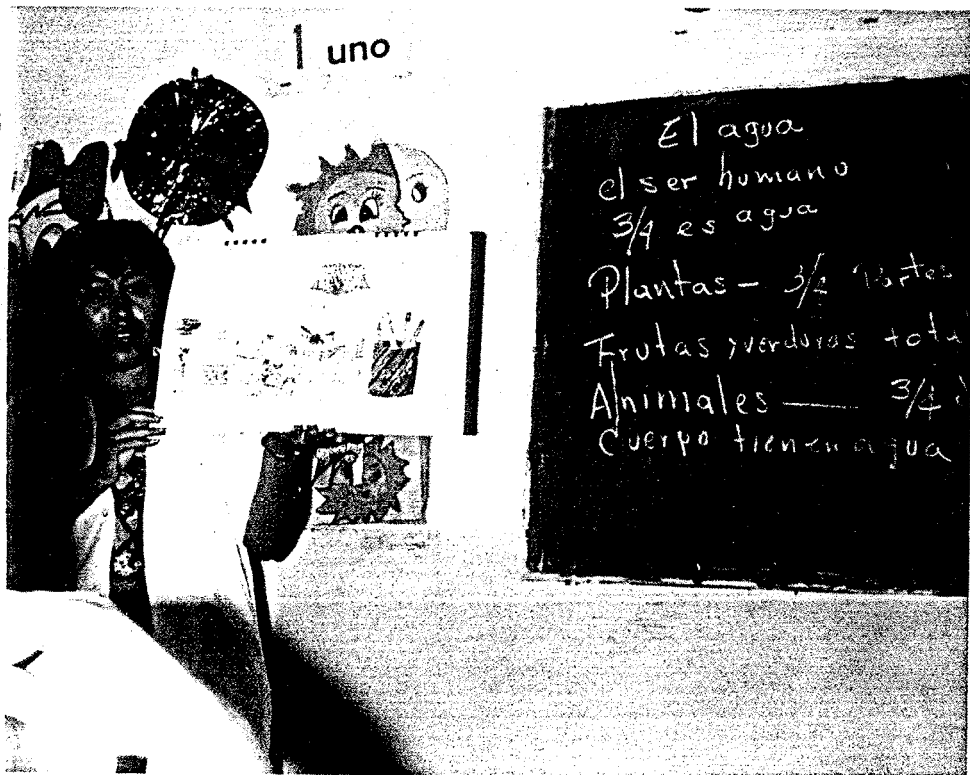 1 uno
El agua
el ser humano
3/4 es agua
Plantas - 3/4 Partes
Frutas y verduras
Animales — 3/4
Cuerpo tienen agua